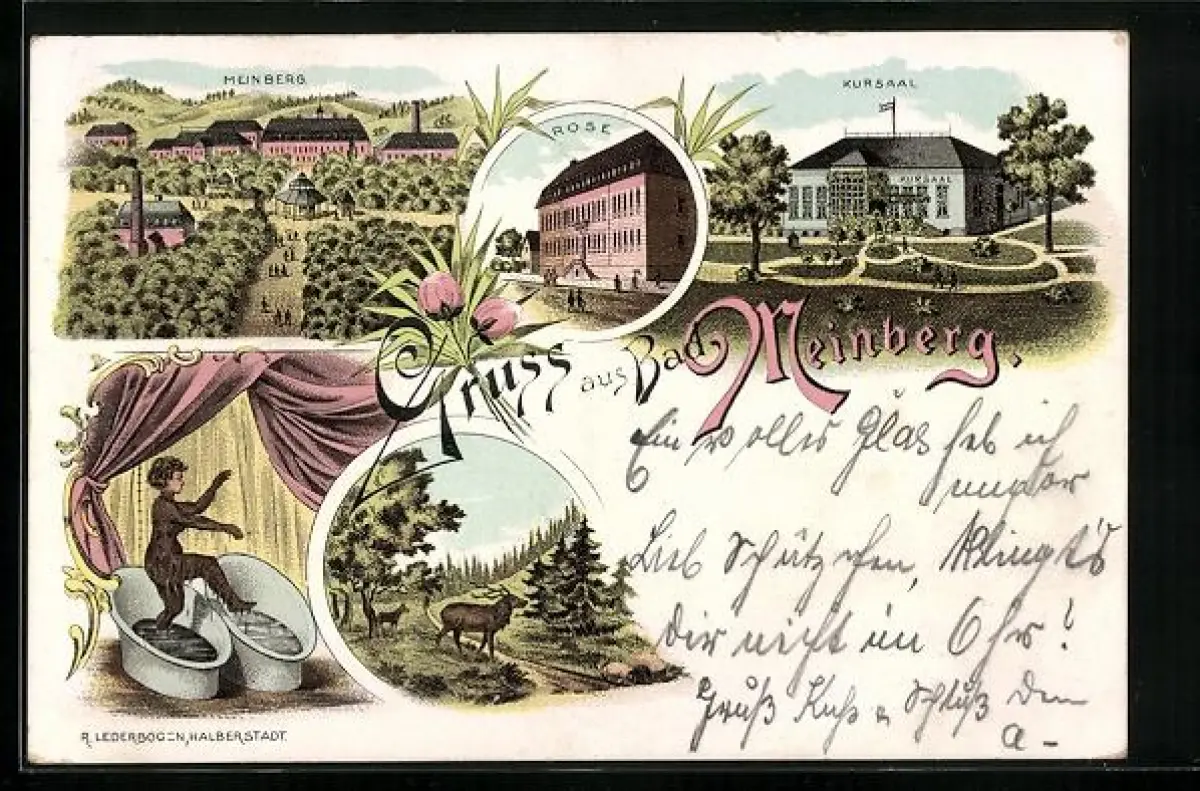 MEINBERG
ROSE
KURSAAL
KURSAAL
Gruss aus Bad Meinberg.
Ein volles Glas hab ich
Lieb Schützchen, klingt's
Dir nicht im Ohr!
Gruß Kuß & Schluß Dein
A-
R. LEDERBOGEN, HALBERSTADT.